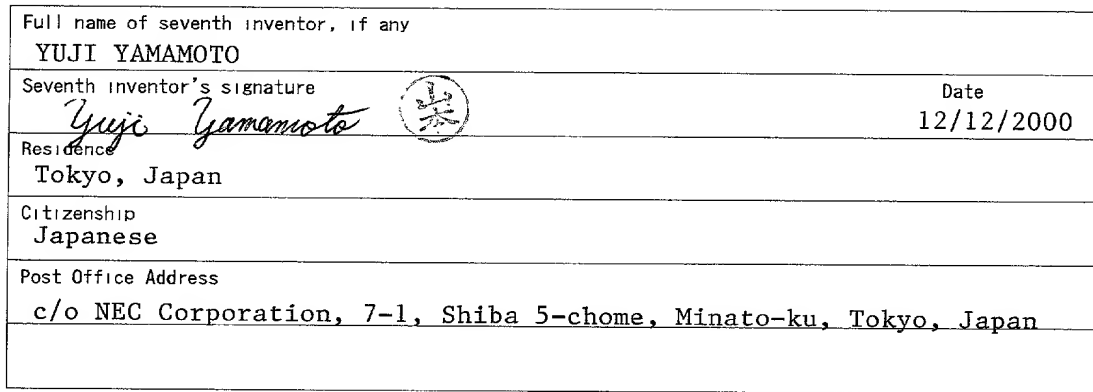 Full name of seventh inventor, if any
YUJI YAMAMOTO
Seventh inventor's signature
Date
Yuji Yamamoto 山本
12/12/2000
Residence
Tokyo, Japan
Citizenship
Japanese
Post Office Address
c/o NEC Corporation, 7-1, Shiba 5-chome, Minato-ku, Tokyo, Japan